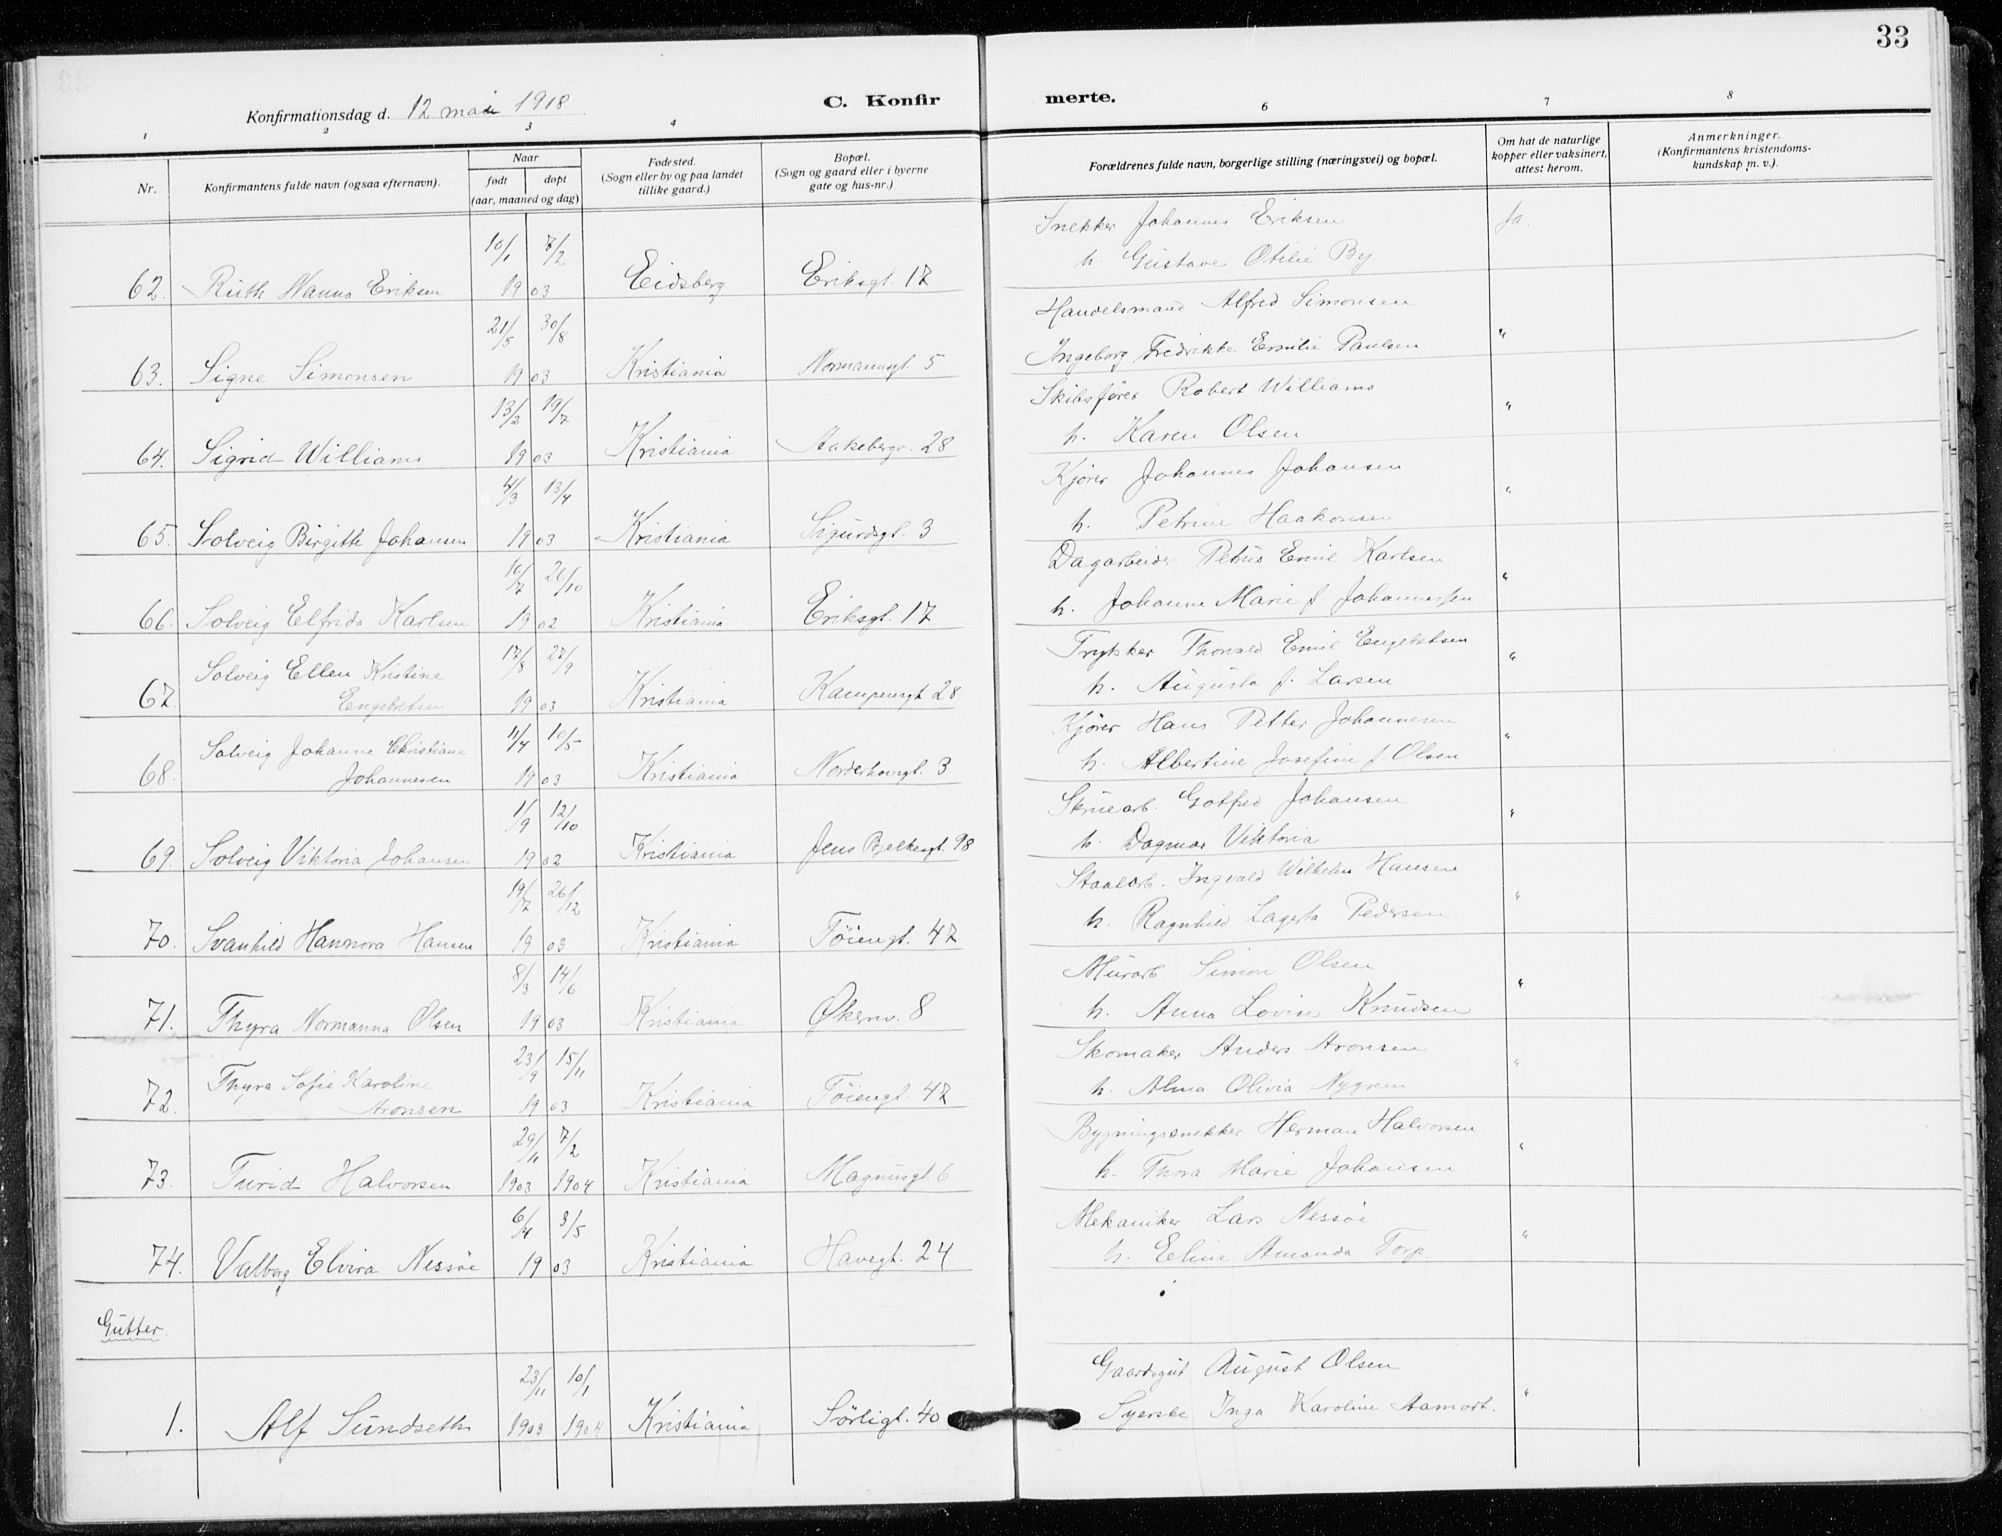 33
Konfirmationsdag d. 12 mai 1918
C. Konfir
merte.
1 2 3 4 6 7 8
Nr.
Konfirmantens fulde navn (ogsaa efternavn).
Naar
født døpt
(aar, maaned og dag)
Fødested.
(Sogn eller by og paa landet
tillike gaard.)
Bopæl.
(Sogn og gaard eller i byerne
gate og hus-nr.)
Forældrenes fulde navn, borgerlige stilling (næringsvei) og bopæl.
Om hat de naturlige
kopper eller vaksinert,
attest herom.
Anmerkninger.
(Konfirmantens kristendoms-
kundskap m. v.).
Snekker Johannes Eriksen Ja.
10/1 7/2 h. Gustave Otilie By
62. Ruth Nanna Eriksen 1903 Eidsberg Eriksgt. 17
Handelsmand Alfred Simonsen
21/5 30/8 "
Ingeborg Fredrikke Emilie Paulsen
63. Signe Simonsen 1903 Kristiania Normannsgt. 5
Skibsfører Robert Williams
13/2 19/7 "
h. Karen Olsen
64. Sigrid Williams 1903 Kristiania Aakebergv. 28
Kjører Johannes Johansen
4/3 13/4 "
h. Petrine Haakonsen
65. Solveig Birgitte Johansen 1903 Kristiania Sigurdsgt. 3
Dagarbeider Petrus Emil Karlsen
26/10 "
h. Johanne Marie f. Johannessen
66. Solveig Elfrida Karlsen 1902 Kristiania Eriksgt. 17
Trykker Thorvald Emil Engebretsen
17/8 27/9 "
Solveig Ellen Kristine h. Augusta f. Larsen
67. Engebretsen 1903 Kristiania Kampensgt 28
Kjører Hans Petter Johannesen
11/4 10/5 "
Solveig Johanne Christiane h. Albertine Josefine f Olsen
68. Johannesen 1903 Kristiania Norderhovsgt. 3
Skruearb. Gotfred Johansen
1/9 12/10 "
h. Dagmar Viktoria
69. Solveig Viktoria Johansen 1902 Kristiania Jens Bjelkesgt 98
Staalarb. Ingvald Wilhelm Hansen
26/12 "
h. Ragnhild Lagerta Pedersen
70. Svanhild Hannora Hansen 1903 Kristiania Töiengt. 47
Murarb. Simon Olsen
8/3 14/6 "
h. Anna Lovise Knudsen
71. Thyra Normanna Olsen 1903 Kristiania Økernv. 8
Skomaker Anders Aronsen
23/9 15/11 "
Thyra Sofie Karoline h. Alma Olivia Nygren
72. Aronsen 1903 Kristiania Töiengt. 47
Bygningssnekker Herman Halvorsen
29/11 7/2 "
h. Thora Marie Johansen
73. Turid Halvorsen 1903 1904 Kristiania Magnusgt. 6
Mekaniker Lars Nessöe
6/4 3/5 "
h. Eline Amanda Torp
74. Valborg Elvira Nessöe 1903 Kristiania Havegt. 24
Gutter
Gaardsgut August Olsen
23/11 10/1 "
Syerske Inga Karoline Aamodt.
1. Alf Sundseth 1903 1904 Kristiania Sörligt. 40